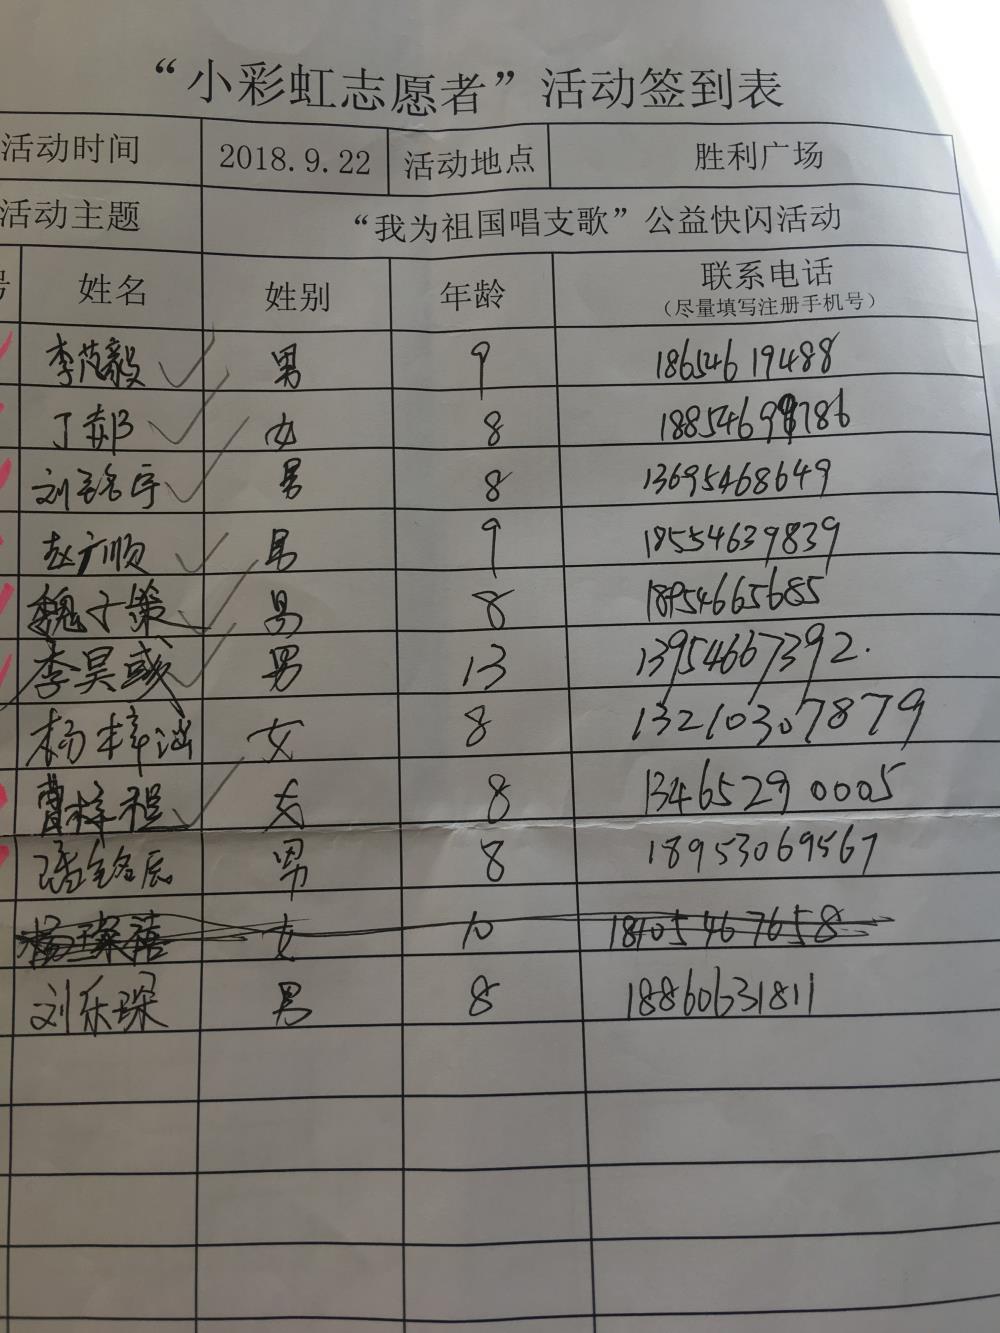 “小彩虹志愿者”活动签到表
活动时间 2018.9.22 活动地点 胜利广场
活动主题 “我为祖国唱支歌”公益快闪活动
号 姓名 性别 年龄 联系电话
（尽量填写注册手机号）
李茂毅 男 9 18654619488
丁郝 女 8 786
刘铭宇 男 8 13695468649
赵广顺 男 9 18554639839
魏子策 男 8 18954665685
李昊彧 男 13 13954667392.
杨梓涵 女 8 13210307879
曹梓祖 女 8 13465290005
铭辰 男 8 18953069567
女 10
刘乐琛 男 8 18860631811